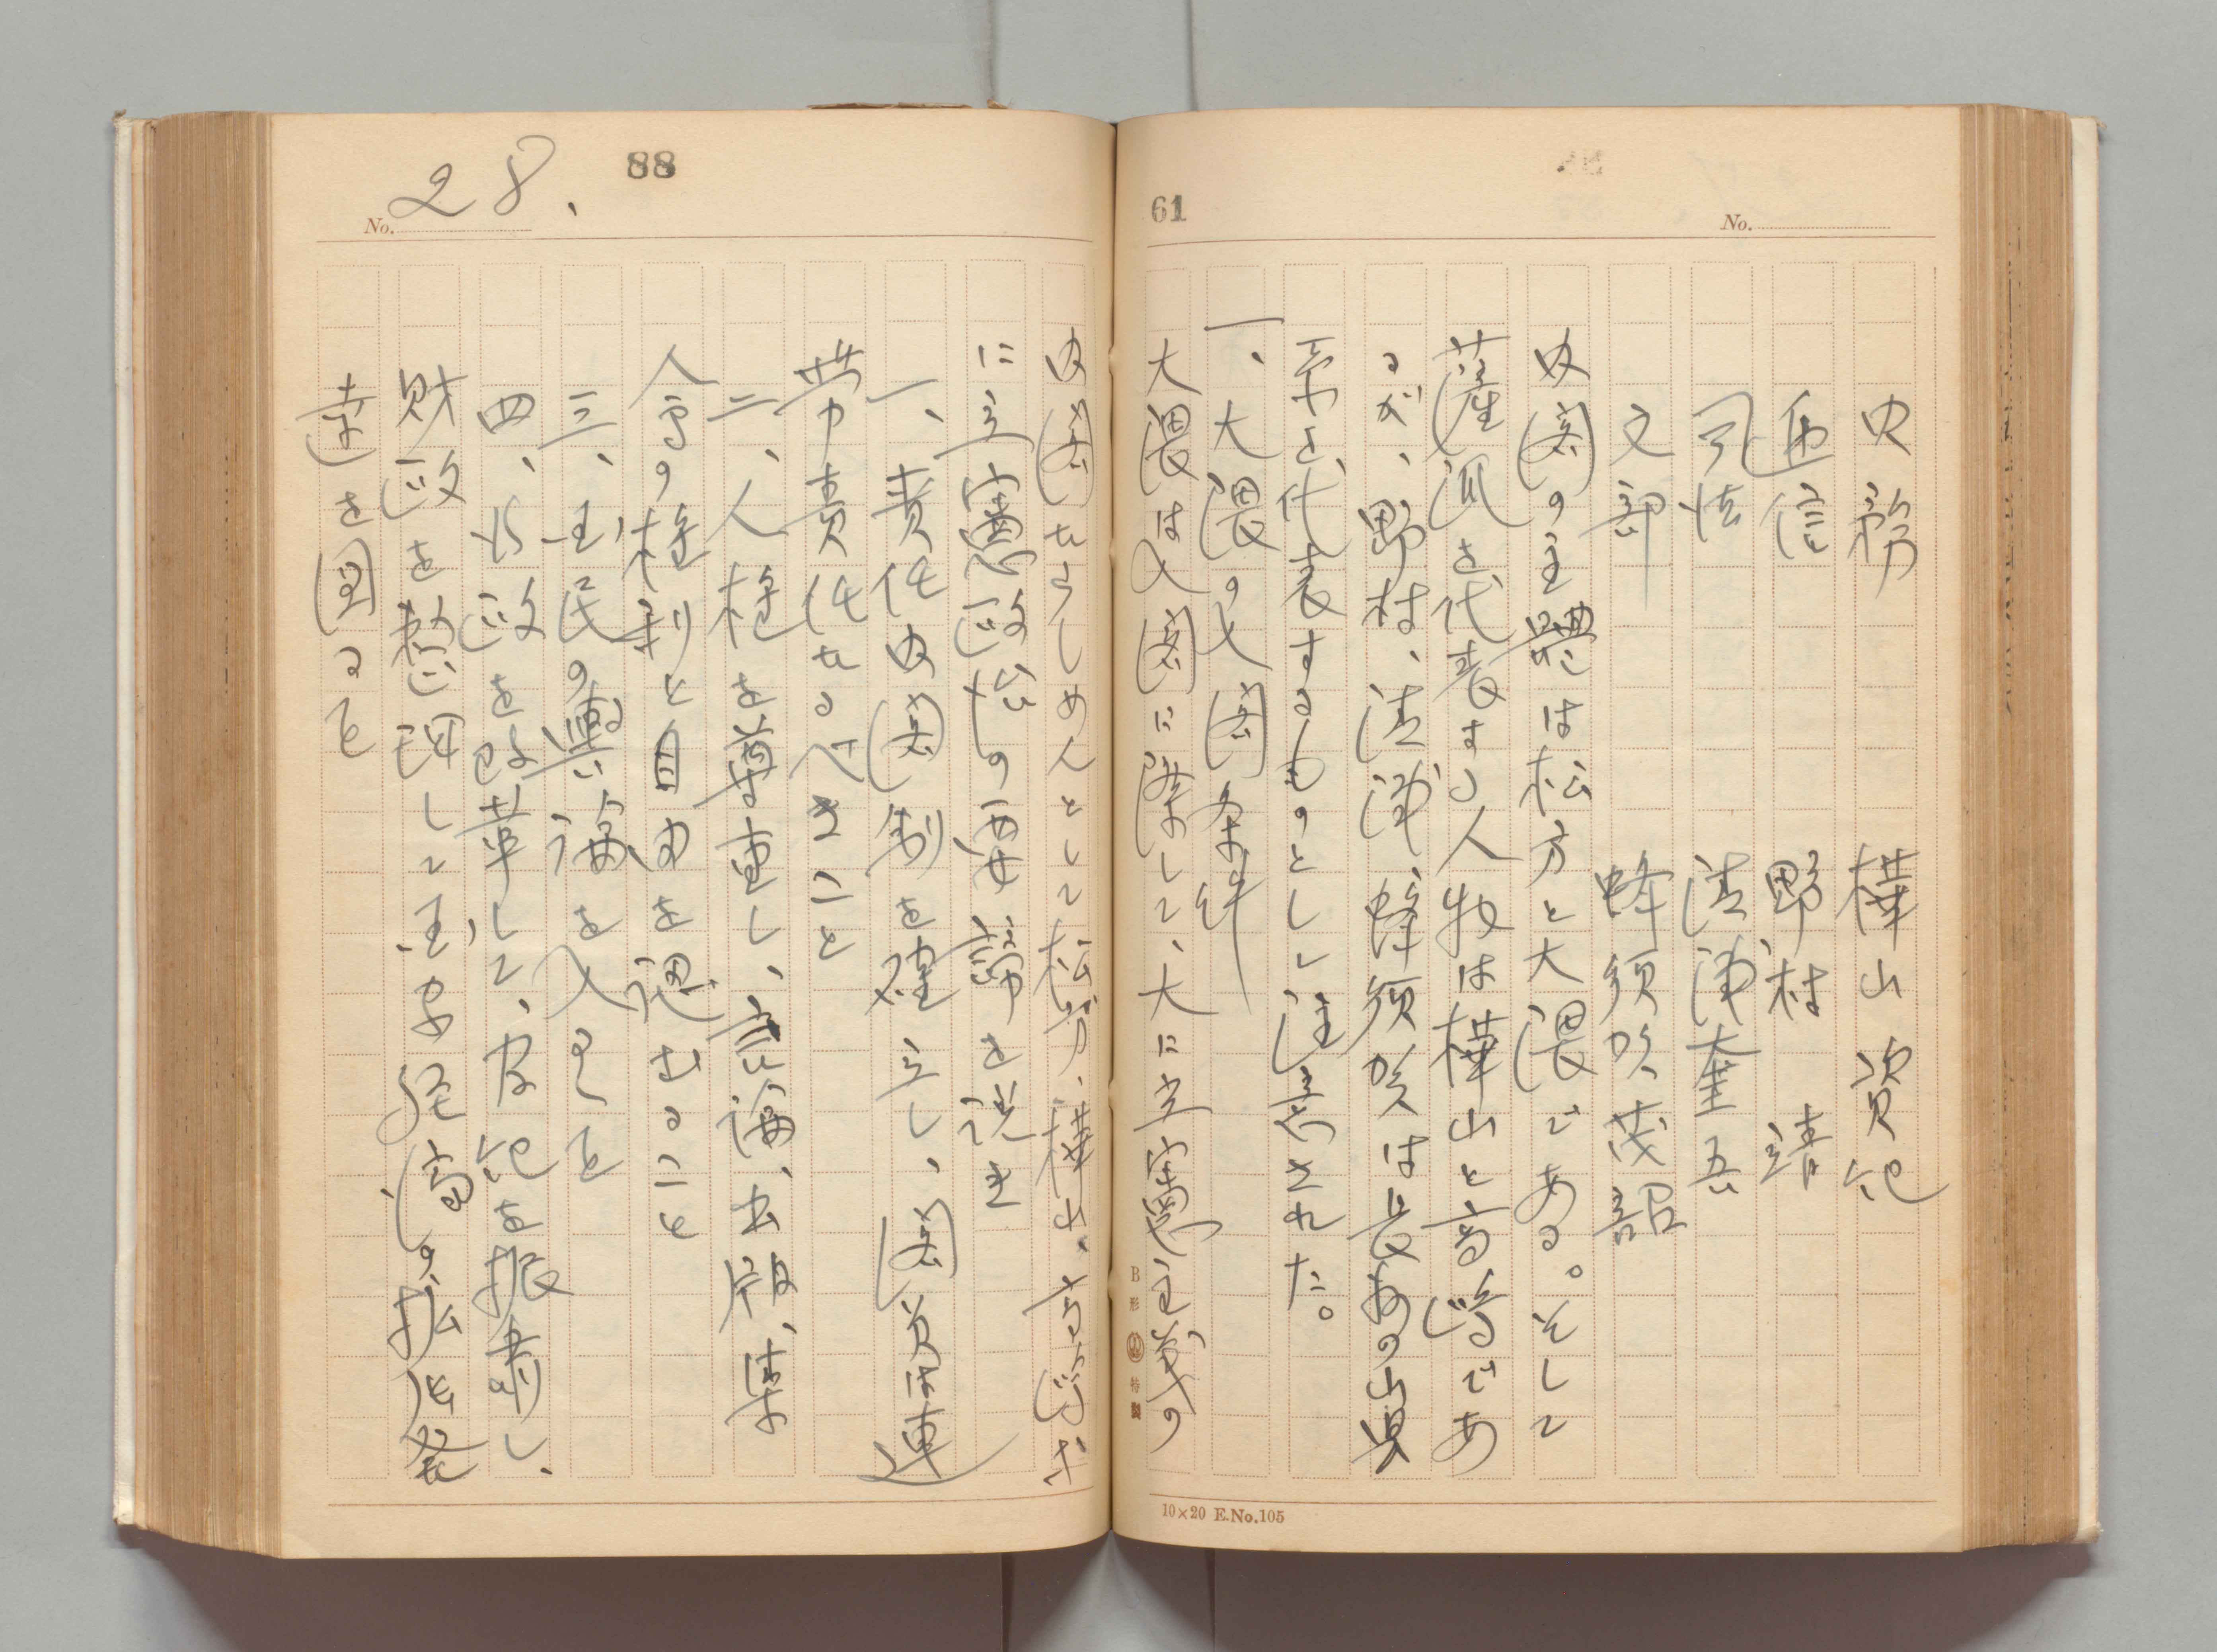 61
No.
内務　樺山資紀
逓信　野村　靖
司法　清浦奎吾
文部　蜂須賀茂韶
内閣の主体は松方と大隈である。そして
薩派を代表する人物は樺山と高島であ
るが、野村、清浦、蜂須賀は長あの山県
系を代表するものとして注意された。
一、大隈の入閣条件
大隈は入閣に際して、大に立憲主義の
B形 特製
10×20 E.No.105
88
No. 28.
内閣たらしめんとして松方、樺山、高島等
に立憲政治の要諦を説き
一、責任内閣制を確立し、閣員は連
帯責任たるべきこと
二、人権を尊重し、言論、出版、集
会等の権利と自由を認むること
三、国民の輿論を入るゝこと
四、行政を改革して、官紀を振粛し、
財政を整理して国家経済の拡張発
達を図ること